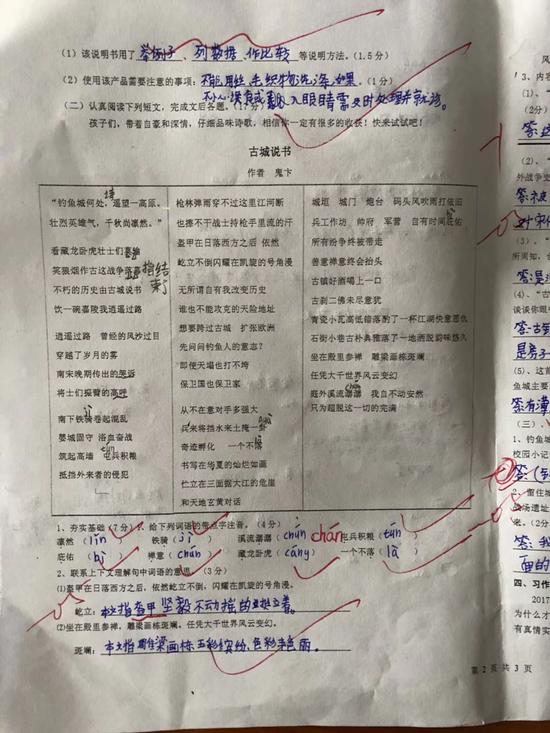 (1) 该说明书用了 举例子 、列数据 作比较 等说明方法。(1.5分)
(2) 使用该产品需要注意的事项: 洗涤,如果 (1分)
入眼睛需及时处理并就诊。
(二) 认真阅读下列短文,完成文后各题。
孩子们,带着自豪和深情,仔细品味诗歌,相信你一定有很多的收获!快来试试吧!
古城说书
作者 鬼卞
“钓鱼城何处,遥望一高原。
壮烈英雄气,千秋尚凛然。”
看藏龙卧虎壮士们
笑狼烟作古这战争落幕
结束了
不朽的历史由古城说书
饮一碗嘉陵我逍遥过路
逍遥过路 曾经的风沙过目
穿越了岁月的雾
南宋晚期传出的哭诉
将士们振臂的高呼
南下铁骑卷起混乱
婴城固守 浴血奋战
筑起高墙 屯兵积粮
抵挡外来者的侵犯
枪林弹雨穿不过这里江河断
也擦不干战士持枪手里流的汗
盔甲在日落西方之后 依然
屹立不倒闪耀在凯旋的号角漫
无所谓自有我改变历史
谁也不能攻克的天险地址
想要跨过古城 扩张欧洲
先问问钓鱼人的意志?
即使天塌也打不垮
保卫国也保卫家
从不在意对手多强大
兵来将挡水来土掩一卦
奇迹孵化 一个不落
书写在华夏的灿烂如画
伫立在三面据大江的危崖
和天地玄黄对话
城垣 城门 炮台 码头风吹雨打依旧
兵工作坊 帅府 军营 自有时间庇佑
所有纷争终被带走
善意禅意终会抬头
古镇好酒喝上一口
古刹二佛未尽意犹
青瓷小瓦高低错落酌了一杯江湖快意恩仇
石街小巷古朴典雅落了一地洒脱韵味悠久
坐在殿里参禅 雕梁画栋斑斓
任凭大千世界风云变幻
庭外溪流潺潺 我自不动安然
只为超脱这一切的完满
1、夯实基础(7分)1、给下列词语的带点字注音。(4分)
凛然(lǐn) 铁骑(jì) 溪流潺潺(chún) chán 屯兵积粮(tún)
庇佑(bì) 禅意(chán) 藏龙卧虎(cáng) 一个不落(là)
2、联系上下文理解句中词语的意思。(3分)
(1)盔甲在日落西方之后,依然屹立不倒,闪耀在凯旋的号角漫。
屹立:本文指盔甲坚毅不动摇的
(2)坐在殿里参禅,雕梁画栋斑斓。任凭大千世界风云变幻。
斑斓:本文指雕梁画栋五彩缤纷,色彩
第 2 页 共 3 页
3、内容
(1)、
(2分)
(2)、
外战争
(3)、
(4)、“古
谈谈你
(5)、这首
鱼城主要
1、钓鱼城
校园小记
战场遗址
来。(2分
四、习作
2017
为什么才
有真情实